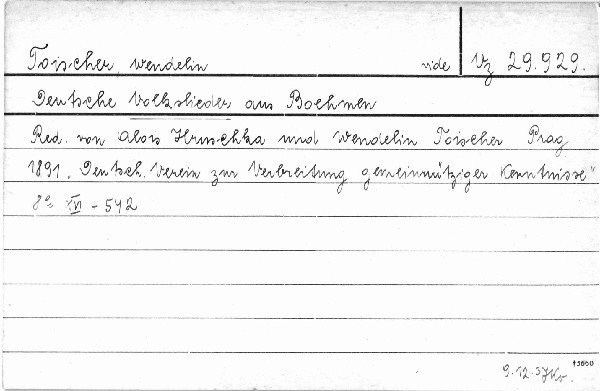 Toischer, Wendelin vide Vz 29.929.
Deutsche Volkslieder aus Boehmen
Red. von Alois Hruschka und Wendelin Toischer Prag
1891. Deutsch. Verein zur Verbreitung gemeinnütziger Kenntnisse"
8° XVI - 542
9.12.37Kr.